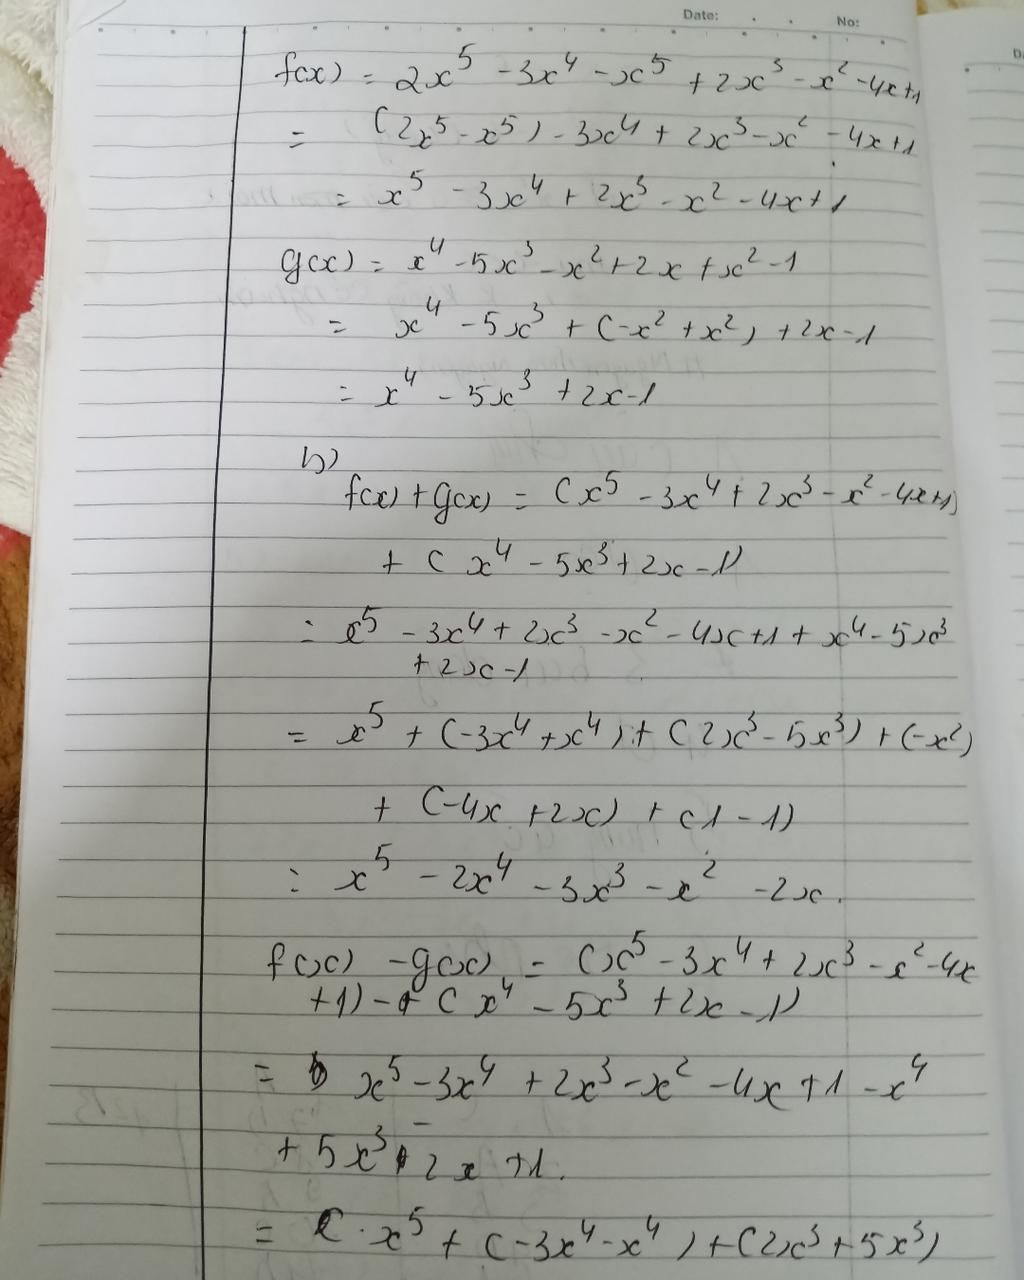 Date: . . No:
f(x) = 2x⁵ - 3x⁴ - x⁵ + 2x³ - x² - 4x + 1
= (2x⁵ - x⁵) - 3x⁴ + 2x³ - x² - 4x + 1
= x⁵ - 3x⁴ + 2x³ - x² - 4x + 1
g(x) = x⁴ - 5x³ - x² + 2x + x² - 1
= x⁴ - 5x³ + (-x² + x²) + 2x - 1
= x⁴ - 5x³ + 2x - 1
b)
f(x) + g(x) = (x⁵ - 3x⁴ + 2x³ - x² - 4x + 1)
+ (x⁴ - 5x³ + 2x - 1)
= x⁵ - 3x⁴ + 2x³ - x² - 4x + 1 + x⁴ - 5x³
+ 2x - 1
= x⁵ + (-3x⁴ + x⁴) + (2x³ - 5x³) + (-x²)
+ (-4x + 2x) + (1 - 1)
= x⁵ - 2x⁴ - 3x³ - x² - 2x.
f(x) - g(x) = (x⁵ - 3x⁴ + 2x³ - x² - 4x
+ 1) - (x⁴ - 5x³ + 2x - 1)
= x⁵ - 3x⁴ + 2x³ - x² - 4x + 1 - x⁴
+ 5x³ - 2x + 1.
= x⁵ + (-3x⁴ - x⁴) + (2x³ + 5x³)